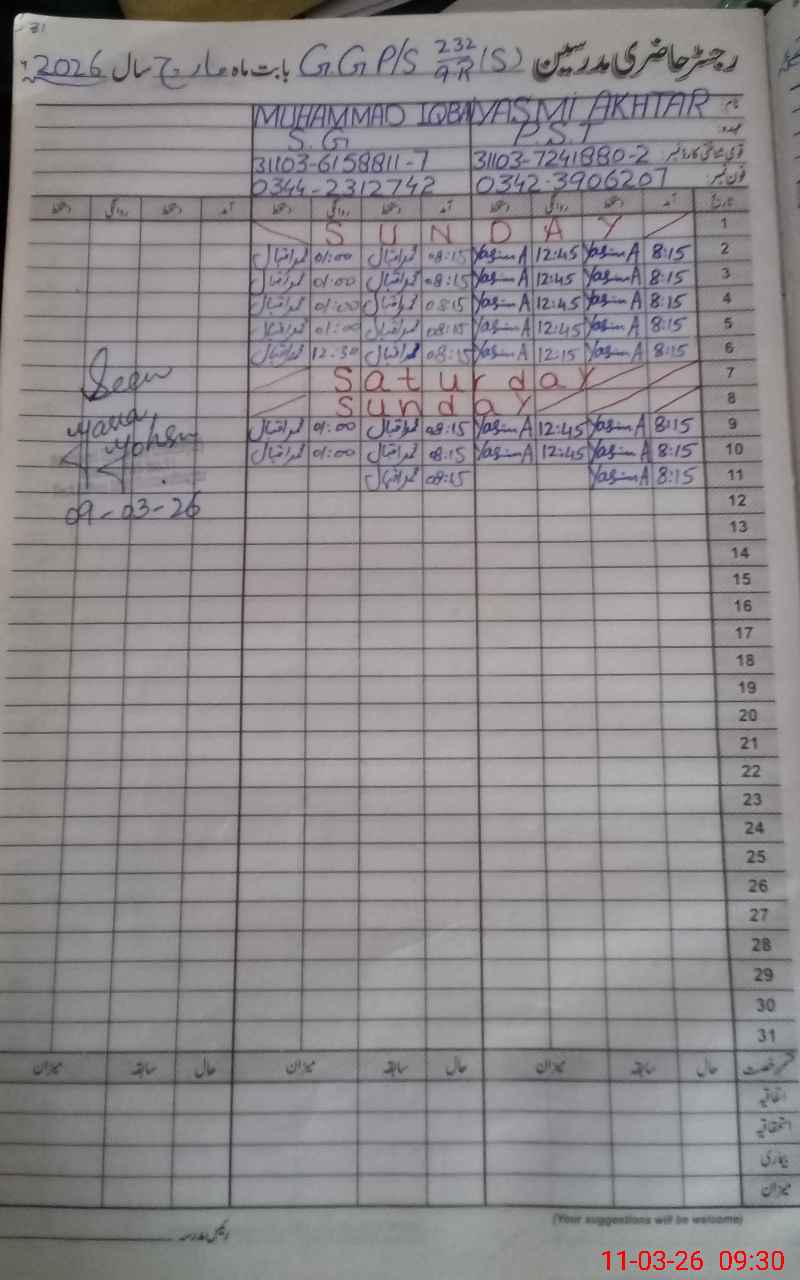 31
رجسٹر حاضری مدرسین GGP/S 232/9R (S) بابت ماہ مارچ سال 2026ء
نام YASMI AKHTAR MUHAMMAD IQBA
عہدہ P.S.T S.G
قومی شناختی کارڈ نمبر 31103-7241880-2 31103-6158811-7
فون نمبر 0342-3906207 0344-2312742
تاریخ آمد دستخط روانگی دستخط آمد دستخط روانگی دستخط آمد دستخط روانگی دستخط
1 SUNDAY
2 8:15 Yasmin A 12:45 Yasmin A 08:15 محمد اقبال 01:00 محمد اقبال
3 8:15 Yasmin A 12:45 Yasmin A 08:15 محمد اقبال 01:00 محمد اقبال
4 8:15 Yasmin A 12:45 Yasmin A 08:15 محمد اقبال 01:00 محمد اقبال
5 8:15 Yasmin A 12:45 Yasmin A 08:15 محمد اقبال 01:00 محمد اقبال
6 8:15 Yasmin A 12:15 Yasmin A 08:15 محمد اقبال 12:30 محمد اقبال
7 Saturday
8 Sunday
9 8:15 Yasmin A 12:45 Yasmin A 08:15 محمد اقبال 01:00 محمد اقبال
10 8:15 Yasmin A 12:45 Yasmin A 08:15 محمد اقبال 01:00 محمد اقبال
11 8:15 Yasmin A 08:15 محمد اقبال
Seen
09-03-26
12
13
14
15
16
17
18
19
20
21
22
23
24
25
26
27
28
29
30
31
قسم رخصت حال سابقہ میزان حال سابقہ میزان حال سابقہ میزان
اتفاقیہ
استحقاقیہ
بیماری
میزان
(Your suggestions will be welcome)
11-03-26 09:30